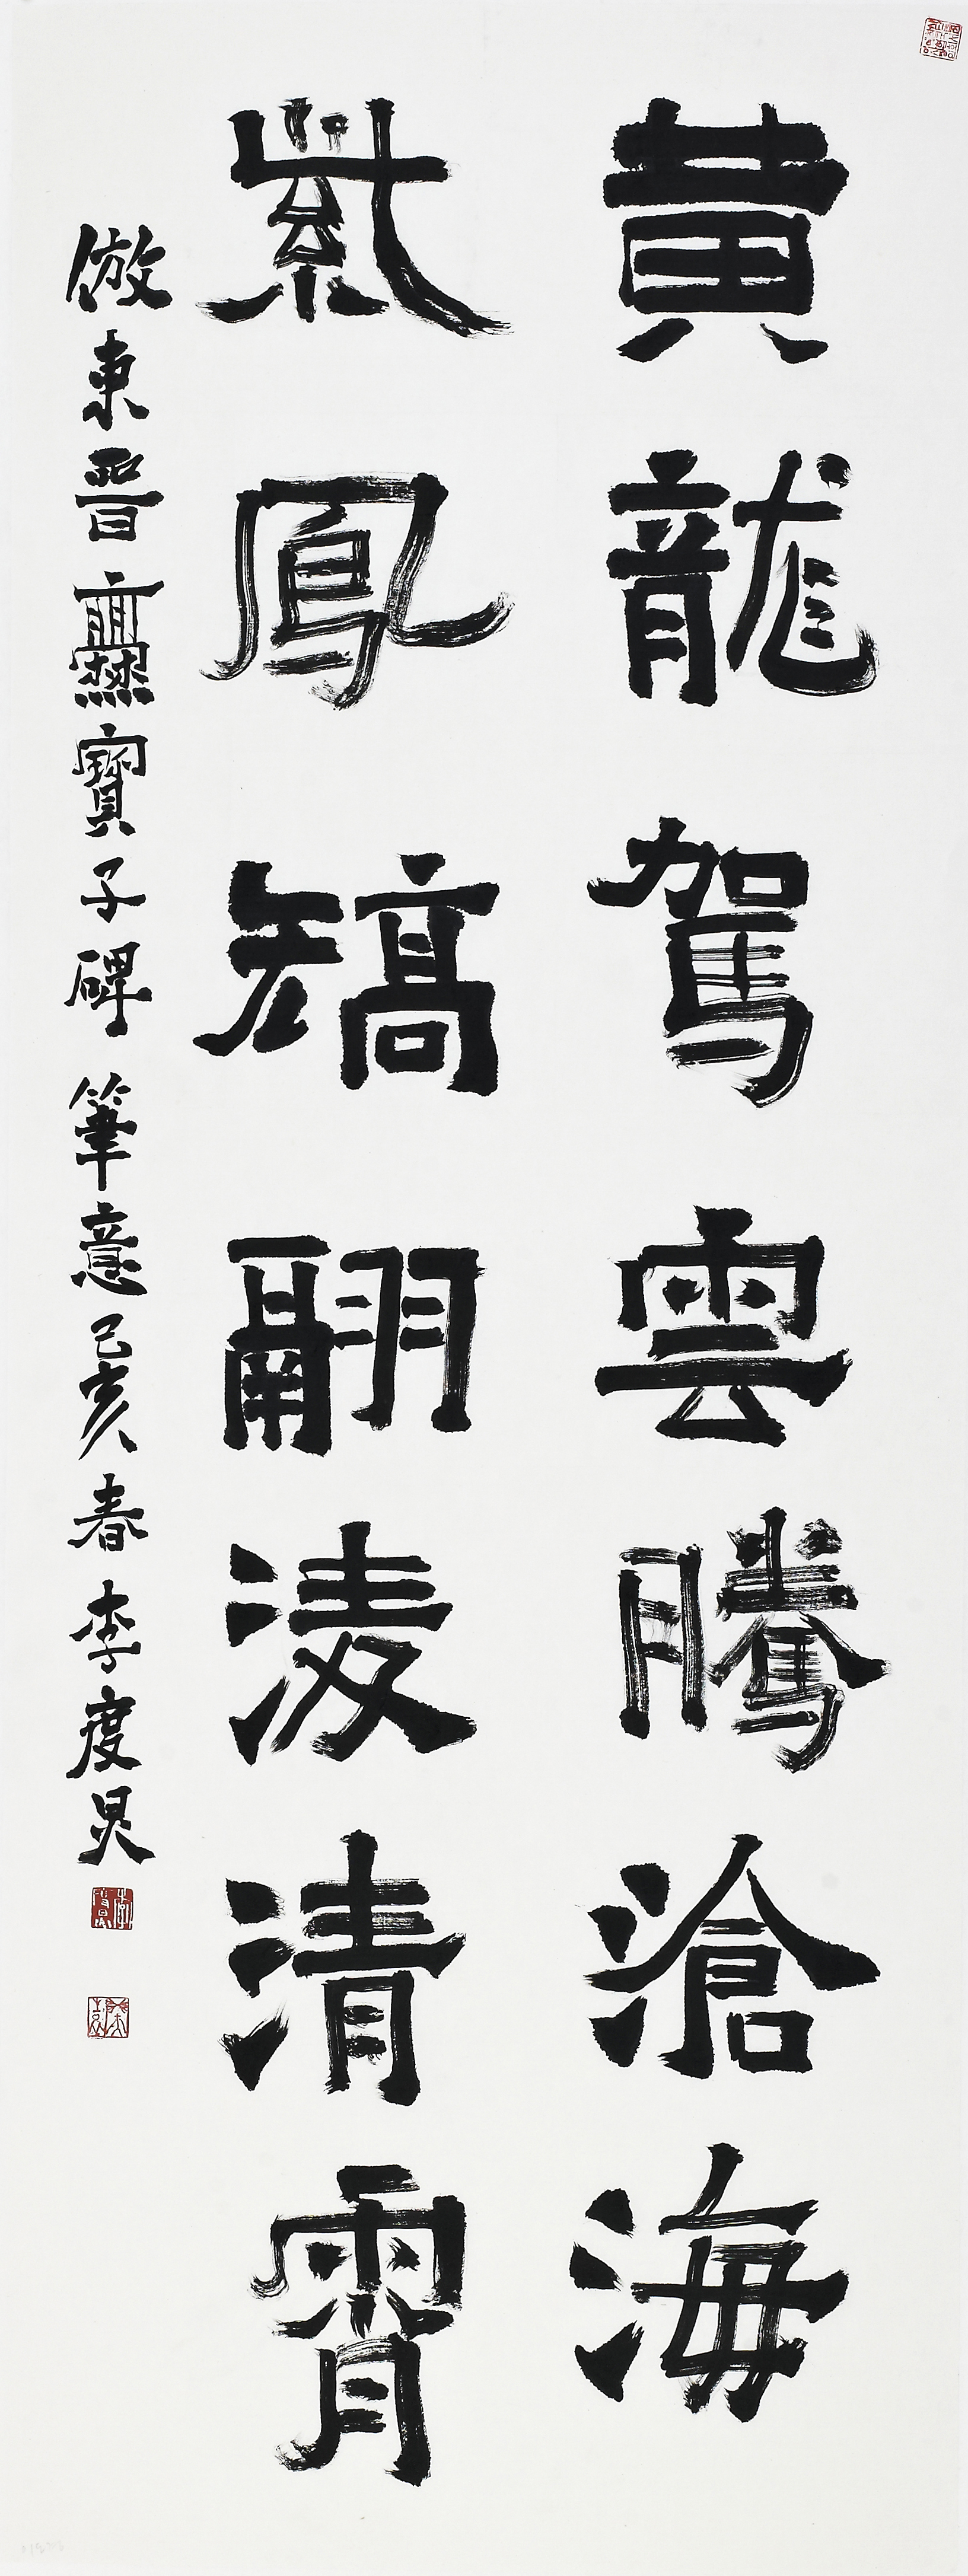 黃龍駕雲騰滄海
紫鳳矯翮凌清霄
倣東晉爨寶子碑筆意己亥春李度炅